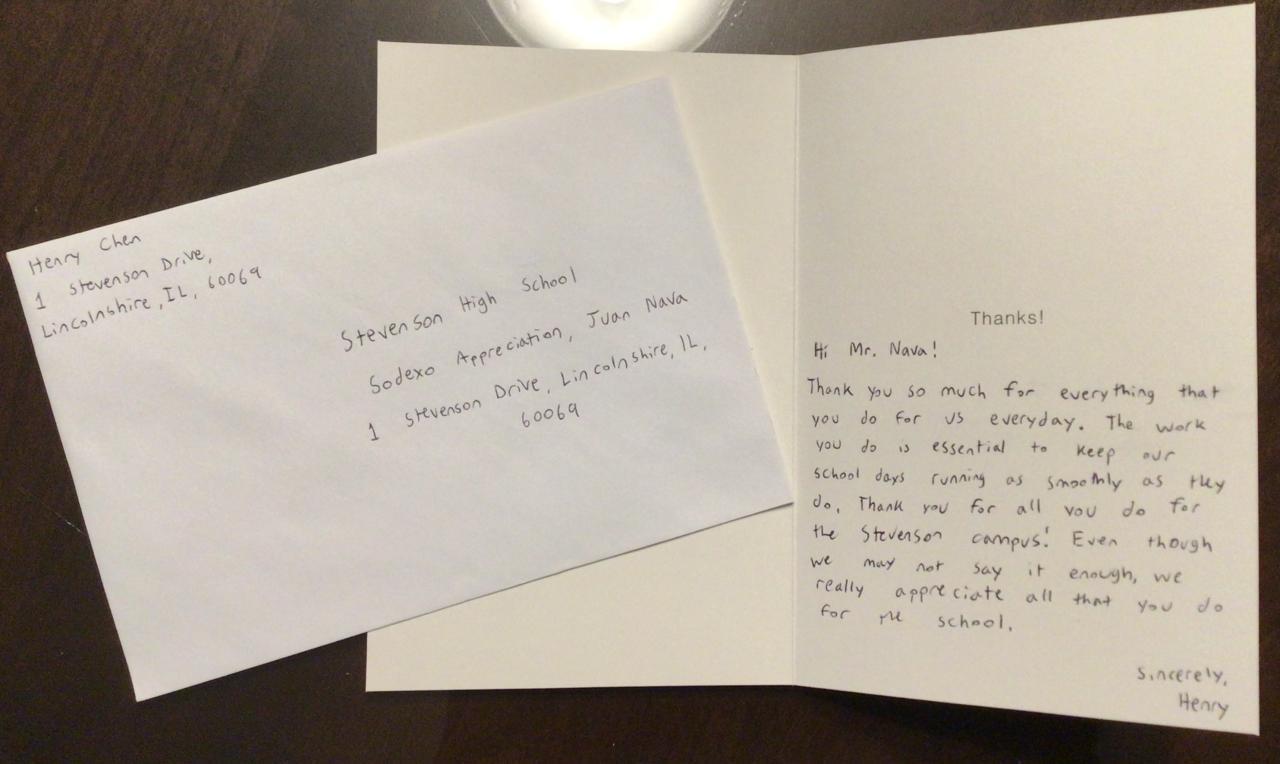 Henry Chen
1 Stevenson Drive,
Lincolnshire, IL, 60069
Stevenson High School
Sodexo Appreciation, Juan Nava
1 Stevenson Drive, Lincolnshire, IL,
60069
Thanks!
Hi Mr. Nava!
Thank you so much for everything that
you do for us everyday. The work
you do is essential to keep our
school days running as smoothly as they
do. Thank you for all you do for
the Stevenson campus! Even though
we may not say it enough, we
really appreciate all that you do
for the school.
Sincerely,
Henry